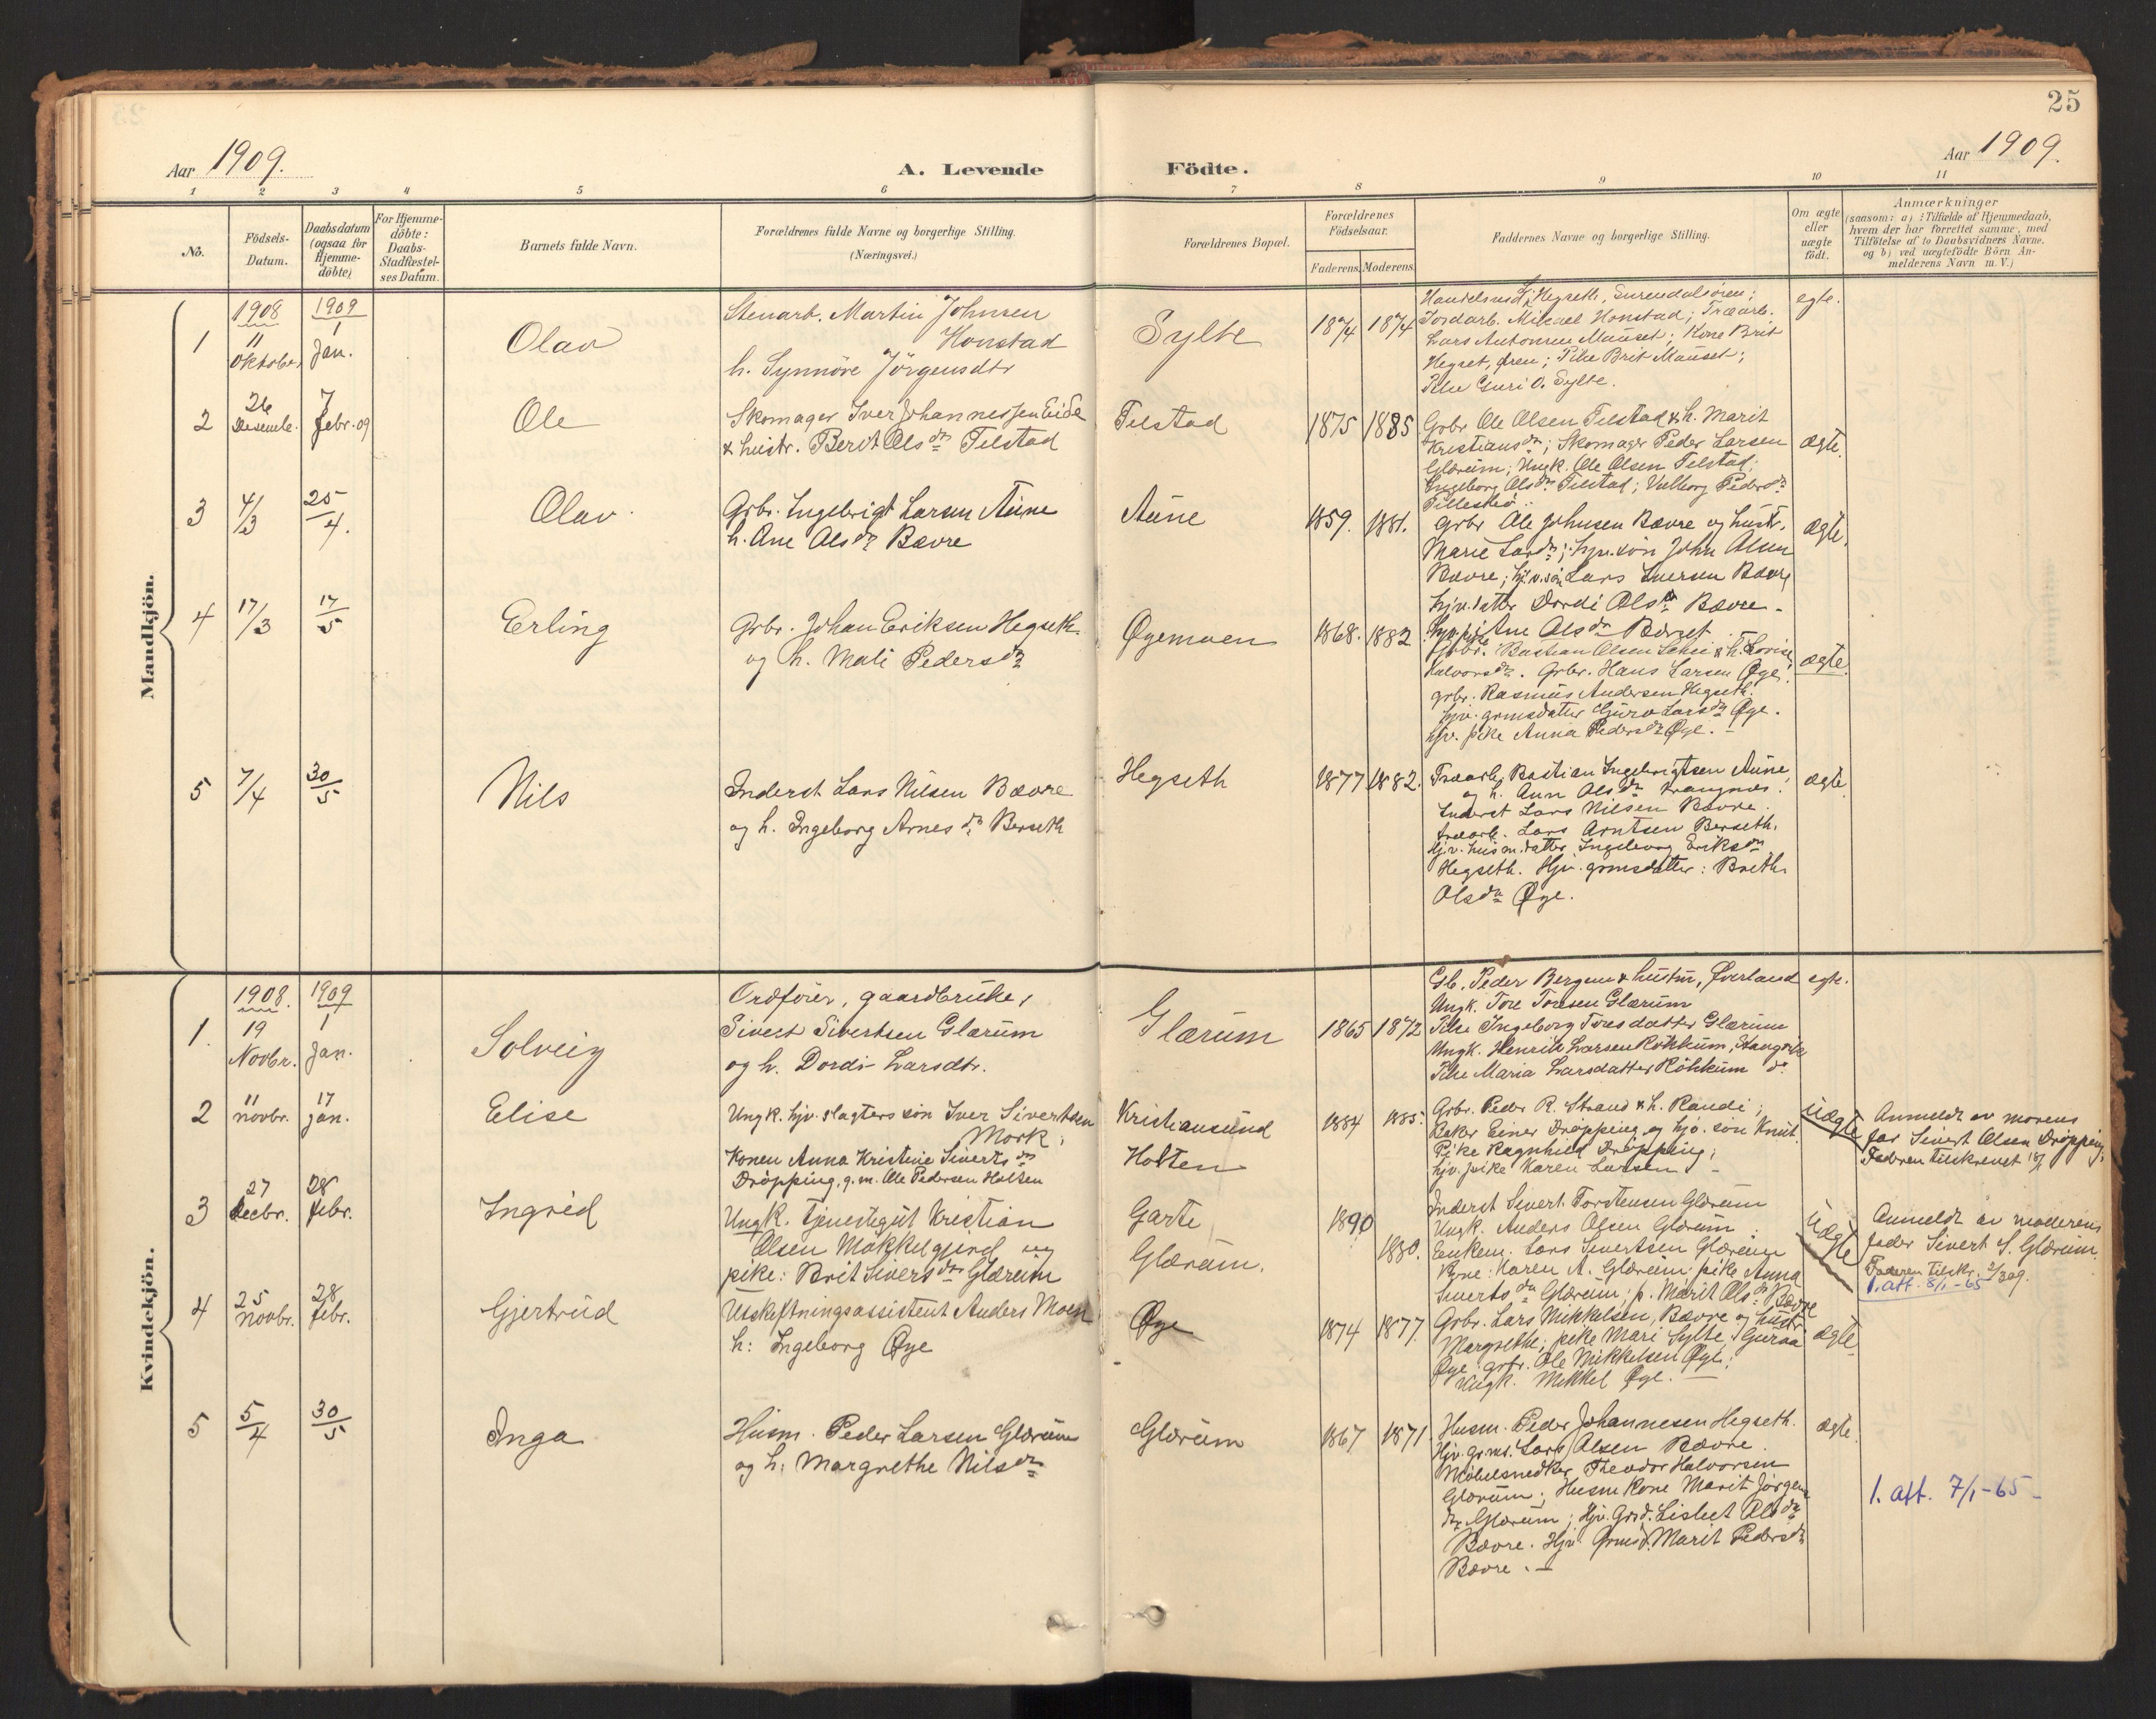 25
Aar 1909.
A. Levende
Födte.
Aar 1909.
1 2 3 4 5 6 7 8 9 10 11
No.
Födsels-
Datum.
Daabsdatum
(ogsaa for
Hjemme-
döbte)
For Hjemme-
döbte:
Daabs-
Stadfæstel-
ses Datum.
Barnets fulde Navn.
Forældrenes fulde Navne og borgerlige Stilling.
(Næringsvei.)
Forældrenes Bopæl.
Forældrenes
Födselsaar.
Faderens. Moderens.
Faddernes Navne og borgerlige Stilling.
Om ægte
eller
uægte
födt.
Anmærkninger
(saasom: a) i Tilfælde af Hjemmedaab,
hvem der har forrettet samme, med
Tilföielse af to Daabsvidners Navne,
og b) ved uægtefödte Börn An-
melderens Navn m. V.)
Mandkjön.
1
1908
11
Oktober
1909
1
Jan.
Olav
Stenarb. Martin Johnsen
Honstad
h. Synnöve Jörgensdtr
Sylte
1874 1874
Hegseth, Surendalsören;
Jordarb. Mikael Honstad; Træarb.
Lars Antonsen Mauset; Kone Brit
Hegset, Ören; Pike Brit Mauset;
Pike Guri O. Sylte.
egte.
2
26
Desemb.
7
Febr. 09
Ole
Skomager Iver Johannessen Eide
& hustr. Berit Olsdr Telstad
Telstad
1875 1885
Grbr Ole Olsen Telstad & h. Marit
Kristiansdr; Skomager Peder Larsen
Glærum; Ungk. Ole Olsen Telstad;
Ingeborg Olsdr Telstad; Valborg Pedersdr
ægte.
3
4/3
25/4.
Olav.
Grbr. Ingebrigt Larsen Aune
h. Ane Olsdr Bævre
Aune
1859. 1881.
Grbr Ole Johnsen Bævre og hustr.
Marie Larsdr; hjv. søn John Olsen
Bævre; hjv. søn Lars Iversen Bævre
hjv. datter Dordi Olsdr Bævre.
Ane Olsdr Bævre
ægte.
4
17/3
17/5
Erling
Grbr. Johan Eriksen Hegseth
og h. Mali Pedersdr
Øyemoen
1868. 1882
Grbr. Bastian Olsen & h. Lovise
Halvorsdr. Grbr. Hans Larsen Øye.
grbr. Rasmus Andersen Hegseth.
hjv. grmsdatter Guro Larsdr Øye.
hjv. pike Anna Pedersdr Øye.
ægte.
5
7/4
30/5
Nils
Inderst Lars Nilsen Bævre
og h. Ingeborg Arnesdr Berseth
Hegseth
1877 1882.
Træarb. Bastian Ingebrigtsen Aune,
og h. Ann Olsdr Krangnes.
Inderst Lars Nilsen Bævre.
træarb. Lars Arntsen Berseth.
Hjv. husm. datter Ingeborg Eriksdr
Hegseth. Hjv. grmsdatter: Breth
Olsdr Øye.
ægte
Kvindekjön.
1.
1908.
19
Novbr.
1909
1
Jan.
Solveig
Ordförer, gaardbruker,
Sivert Sivertsen Glærum
og h. Dordi Larsdtr.
Glærum
1865 1872
Gb. Peder Bergem & hustru, Øverland
Ungk. Tore Toresen Glærum
Pike Ingeborg Toresdatter Glærum
Ungk. Henrik Larsen Røkkum, Stangvik
Pike Maria Larsdatter Røkkum do
egte.
2
11
novbr.
17
jan.
Elise
Ungk. hjv. slagters søn Iver Sivertsen
Mork;
Konen Anna Kristine Sivertsdr
Drøpping, g. m. Ole Pedersen Holten
Kristiansund
Holten
1884 1885.
Grbr. Peder R. Strand & h. Randi;
Baker Einer Drøpping og hjv. søn Knut.
Pike Ragnhild Drøpping;
hjv. pike Karen Larsen
Uægte
Anmeldt av morens
far Sivert Olsen Drøpping;
Faderen tilskrevet 18/1
3
27
Decbr.
28
febr.
Ingrid
Ungk. tjenestegut Kristian
Olsen Mokkelgjerd og
pike: Brit Siversdr Glærum
Garte
Glærum.
1890
1880.
Inderst Sivert Torstensen Glærum
Ungk. Anders Olsen Glærum
Enkem. Lars Sivertsen Glærum
Kone: Karen A. Glærum; pike Anna
Sivertsdr Glærum; p. Marit Olsdr Bævre
Uægte
Anmeldt av moderens
fader Sivert S. Glærum.
Faderen tilskr. 2/3 09.
1. att. 8/1-65
4
25
Novbr.
28
febr.
Gjertrud
Utskiftningsassistent Anders Moen
h: Ingeborg Øye
Øye
1874 1877.
Grbr. Lars Mikkelsen, Bævre og hustr
Margrethe; pike Mari Sylte, Guraa
Øye grbr. Ole Mikkelsen Øye;
Ungk. Mikkel Øye.
ægte
5
5/4
30/5
Inga
Husm. Peder Larsen Glærum
og h: Margrethe Nilsdr
Glærum
1867 1871.
Husm. Peder Johannesen Hegseth.
Hjv. grms. Lars Olsen Bævre.
Møbelsnedker Theodor Halvorsen
Glærum; Husm Kone Marit Jørgens
dr Glærum; Hjv. Grd. Lisbet Olsdr
Bævre. Hjv. Grmsd. Marit Pedersdr
Bævre.
ægte.
1. att. 7/1-65